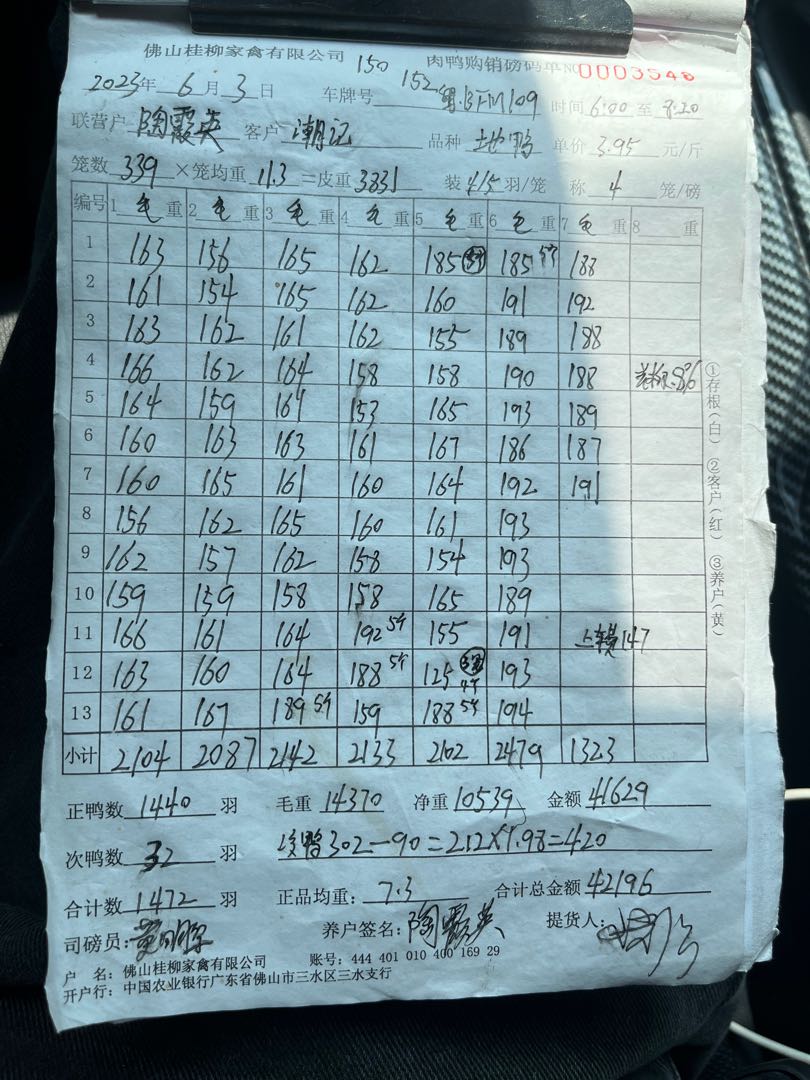 150
佛山桂柳家禽有限公司 肉鸭购销磅码单 NO 0003546
152
2023年 6月 3日 车牌号 粤BFM109 时间 6:00 至 8:20
联营户 陶霞英 客户 潮记 品种 土地鸭 单价 3.95 元/斤
笼数 339 ×笼均重 11.3 =皮重 3831 装 4/5 羽/笼 称 4 笼/磅
编号 1 毛 重 2 毛 重 3 毛 重 4 毛 重 5 毛 重 6 毛 重 7 毛 重 8 重
1 163 156 165 162 185 185 5个 188
2 161 154 165 162 160 191 192
3 163 162 161 162 155 189 188
4 166 162 164 158 158 190 188
5 164 159 161 153 165 193 189
6 160 163 163 161 167 186 187
7 160 165 161 160 164 192 191
8 156 162 165 160 161 193
9 162 157 162 158 154 193
10 159 159 158 158 165 189
11 166 161 164 192 5个 155 191 147
12 163 160 164 188 5个 125 193
13 161 167 189 5个 159 188 5个 194
小计 2104 2087 2142 2133 2102 2479 1323
正鸭数 1440 羽 毛重 14370 净重 10539 金额 41629
次鸭数 32 羽 鸭 302-90=212×1.98=420
合计数 1472 羽 正品均重: 7.3 合计总金额 42196
司磅员: 养户签名: 陶霞英 提货人:
户 名: 佛山桂柳家禽有限公司 账号: 444 401 010 400 169 29
开户行: 中国农业银行广东省佛山市三水区三水支行
①存根(白) ②客户(红) ③养户(黄)